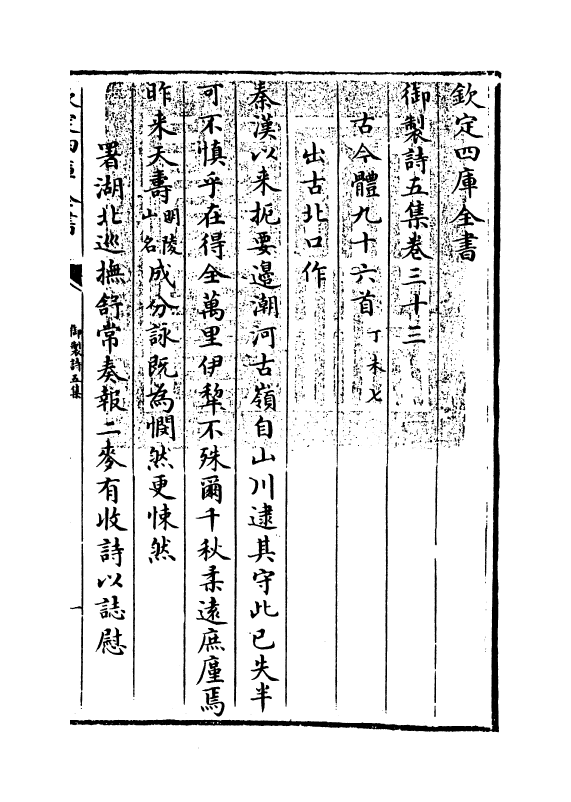 欽定四庫全書
御製詩五集卷三十三
古今體九十六首丁未七
出古北口作
秦漢以来扼要邊潮河古嶺自山川逮其守此已失半
可不慎乎在得全萬里伊犂不殊爾千秋柔遠庶廑焉
昨来天壽明陵山名成分詠既為憫然更悚然
署湖北巡撫舒常奏報二麥有收詩以誌慰
欽定四庫全書
御製詩五集
一